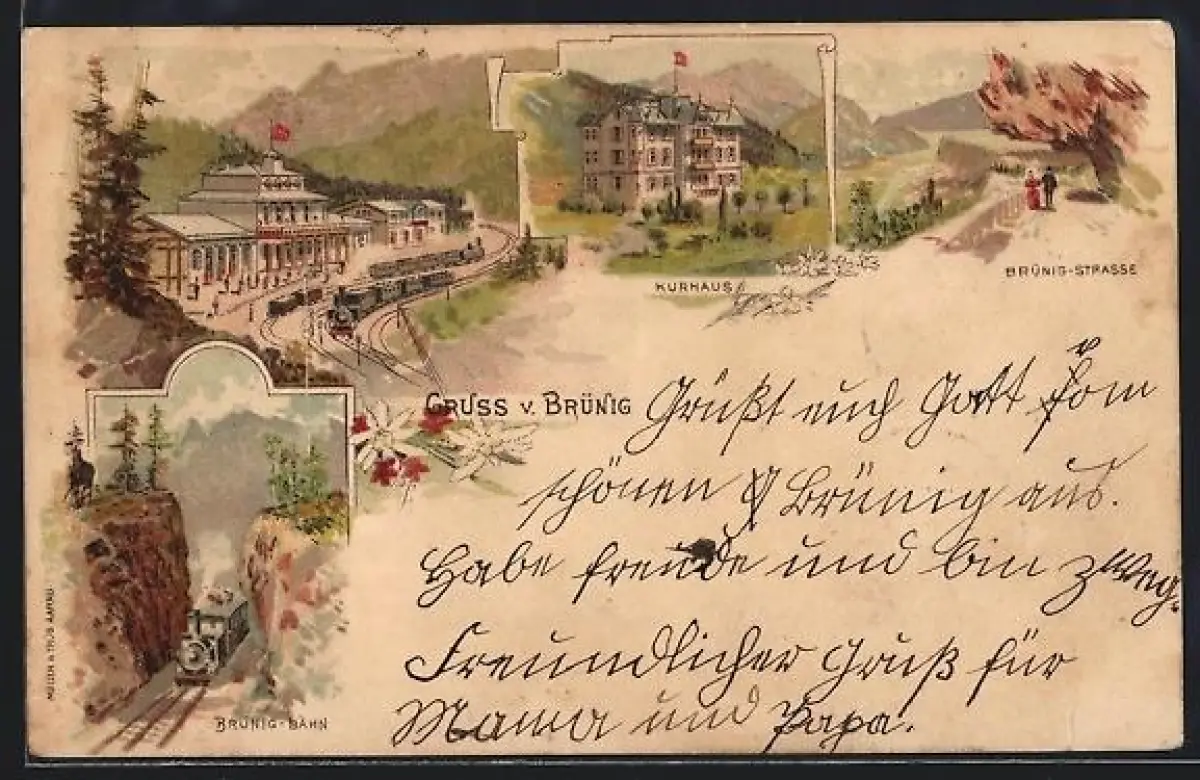 KURHAUS
BRÜNIG-STRASSE
GRUSS v. BRÜNIG
Grüßt euch Gott vom
schönen Brünig aus.
Habe freude und bin zweg.
Freundlicher Gruß für
Mama und Papa.
BRÜNIG-BAHN
MÜLLER & TRÜB AARAU